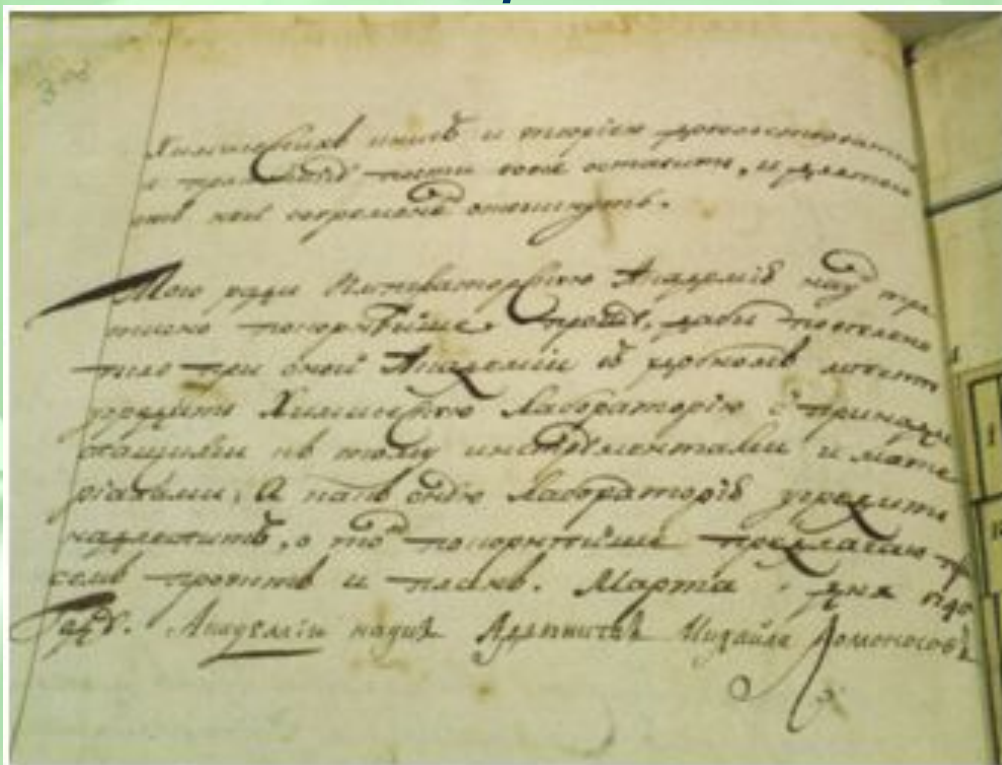 Химическихъ книгъ и теорiею довольствовать
практику почти вовсе оставить, и для того
отъ ней современемъ отвыкнуть.
Того ради Императорскую Академiю наукъ
покорнѣйше прошу, дабы повелено
было при оной Академiи въ удобномъ месте
учредить Химическую Лабораторiю с принадле
жащими къ тому инструментами и мате
рiалами; А какъ оную Лабораторiю учредить
надлежитъ, о томъ покорнѣйше предлагаю при
семъ проектъ и планъ. Марта дня 1745
Году. Академiи наукъ Адъюнктъ Михайла Ломоносовъ